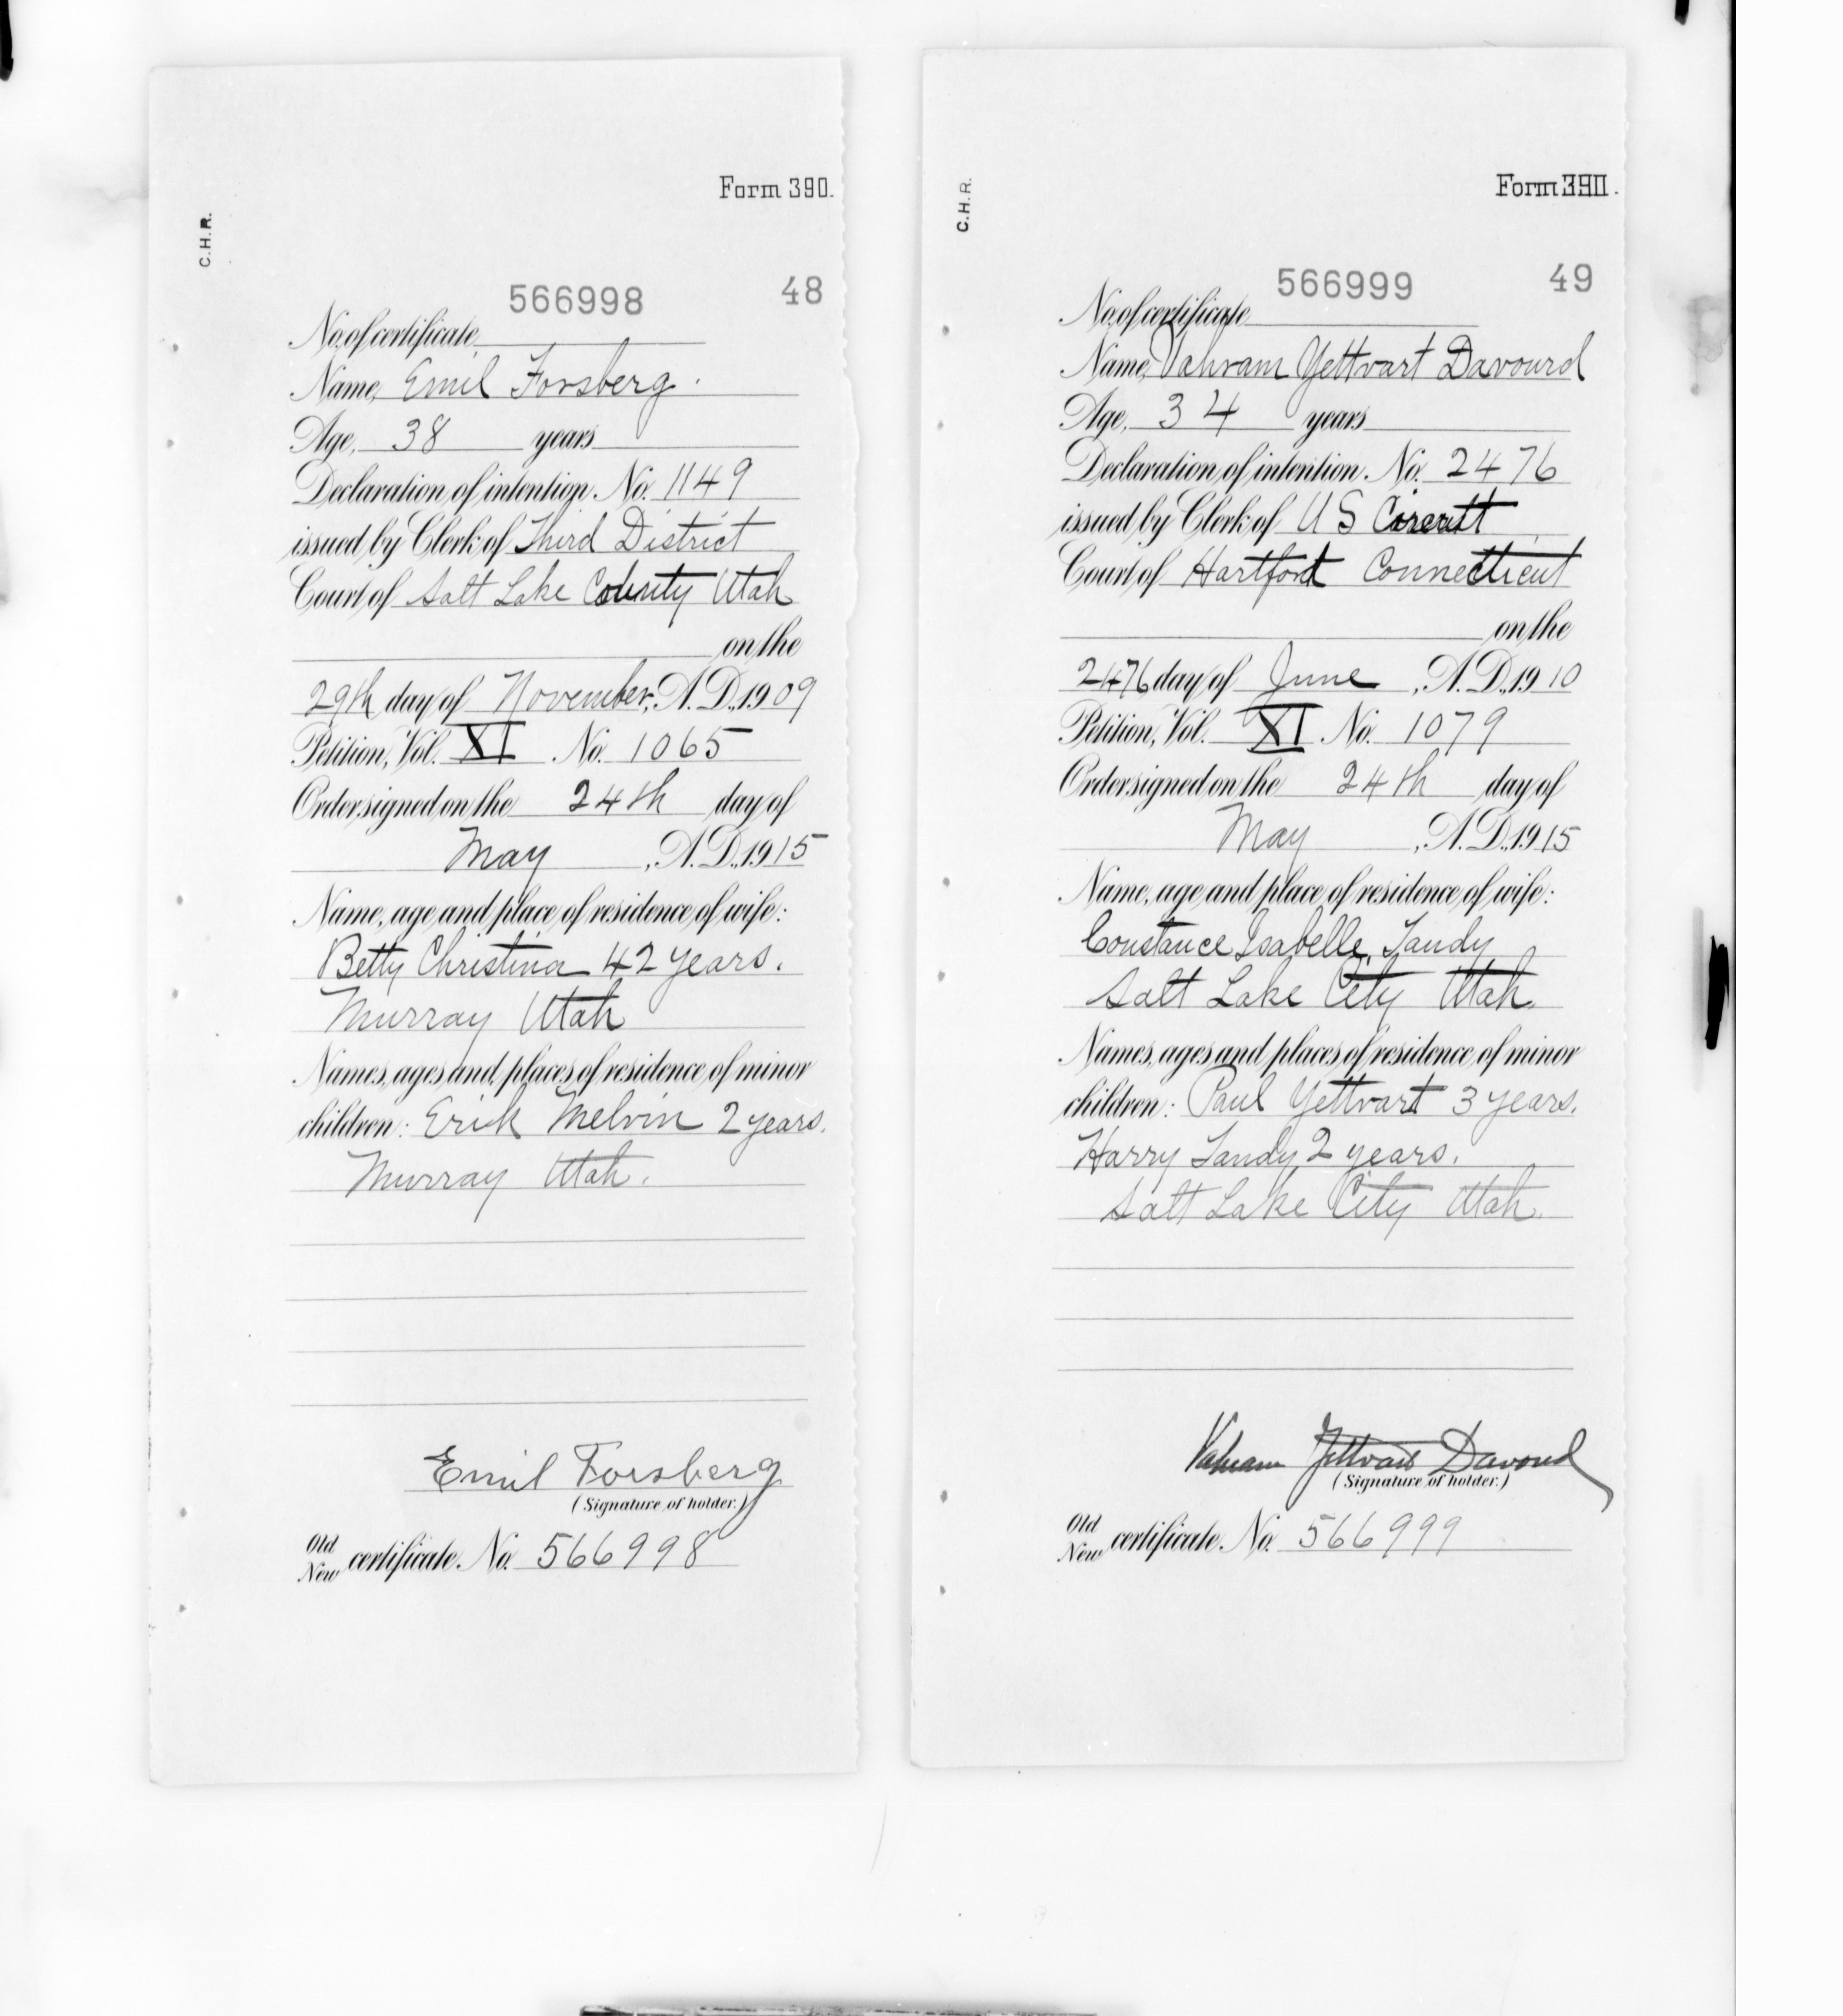 Form 390.
C.H.R.
566998 48
No. of certificate,
Name, Emil Forsberg.
Age, 38 years
Declaration of intention. No. 1149
issued by Clerk of Third District
Court of Salt Lake County Utah
on the
29th day of November, A.D., 1909
Petition, Vol. XI No. 1065
Order signed on the 24th day of
May, A.D., 1915
Name, age and place of residence of wife:
Betty Christina 42 years.
Murray Utah
Names, ages and places of residence of minor
children: Erik Melvin 2 years.
Murray Utah.
Emil Forsberg
(Signature of holder.)
Old
New certificate. No. 566998
Form 390.
C.H.R.
566999 49
No. of certificate
Name, Vahram Yettvart Davourd
Age, 34 years
Declaration of intention. No. 2476
issued by Clerk of US Circuit
Court of Hartford Connecticut
on the
2476 day of June, A.D., 1910
Petition, Vol. XI No. 1079
Order signed on the 24th day of
May, A.D., 1915
Name, age and place of residence of wife:
Constance Isabelle, Tandy
Salt Lake City Utah.
Names, ages and places of residence of minor
children: Paul Yettvart 3 years.
Harry Tandy 2 years.
Salt Lake City Utah.
Vahram Yettvart Davourd
(Signature of holder.)
Old
New certificate. No. 566999